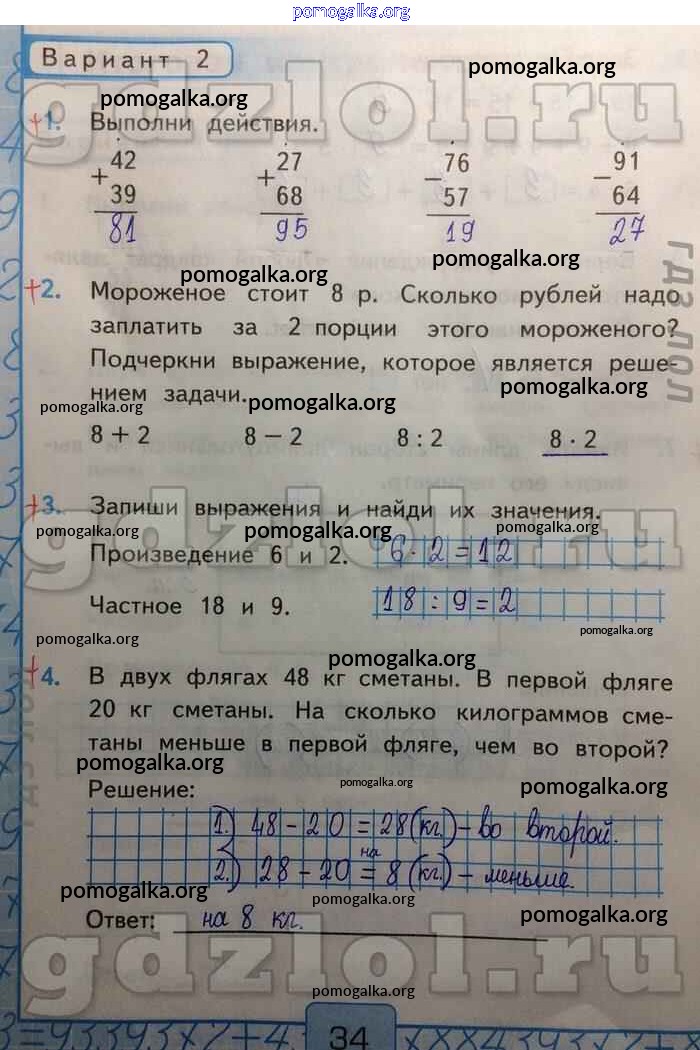 pomogalka.org
Вариант 2
pomogalka.org
gdzlol.ru
pomogalka.org
+1. Выполни действия.
+ 42 + 27 - 76 - 91
39 68 57 64
81 95 19 27
pomogalka.org
pomogalka.org
гдз лол
+2. Мороженое стоит 8 р. Сколько рублей надо
заплатить за 2 порции этого мороженого?
Подчеркни выражение, которое является реше-
нием задачи.
pomogalka.org
pomogalka.org
pomogalka.org
8 + 2 8 - 2 8 : 2 8 · 2
+3. Запиши выражения и найди их значения.
gdzlol.ru
pomogalka.org
pomogalka.org
pomogalka.org
Произведение 6 и 2. 6 · 2 = 12
Частное 18 и 9. 18 : 9 = 2
pomogalka.org
pomogalka.org
pomogalka.org
+4. В двух флягах 48 кг сметаны. В первой фляге
20 кг сметаны. На сколько килограммов сме-
таны меньше в первой фляге, чем во второй?
гдз лол
pomogalka.org
pomogalka.org
pomogalka.org
Решение:
1.) 48 - 20 = 28 (кг.) - во второй.
на
2.) 28 - 20 = 8 (кг.) - меньше.
pomogalka.org
pomogalka.org
pomogalka.org
Ответ: на 8 кг.
gdzlol.ru
pomogalka.org
34